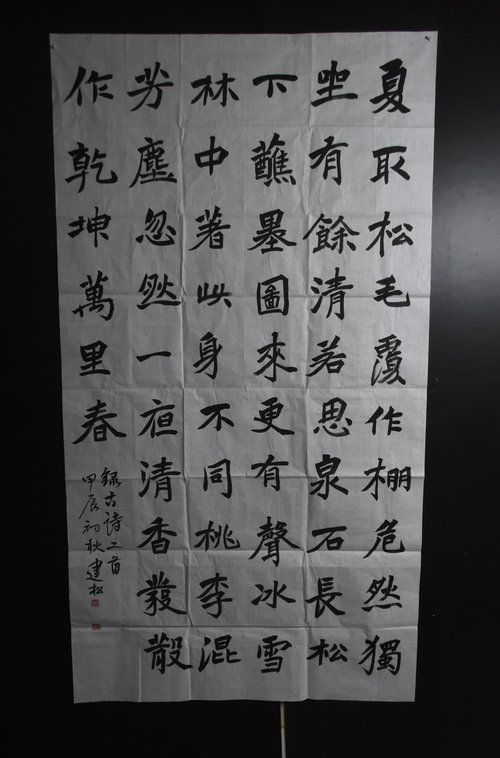 夏取松毛覆作棚危然獨
坐有餘清若思泉石長松
下蘸墨圖來更有聲冰雪
林中著此身不同桃李混
芳塵忽然一夜清香發散
作乾坤萬里春
錄古詩二首
甲辰初秋建松